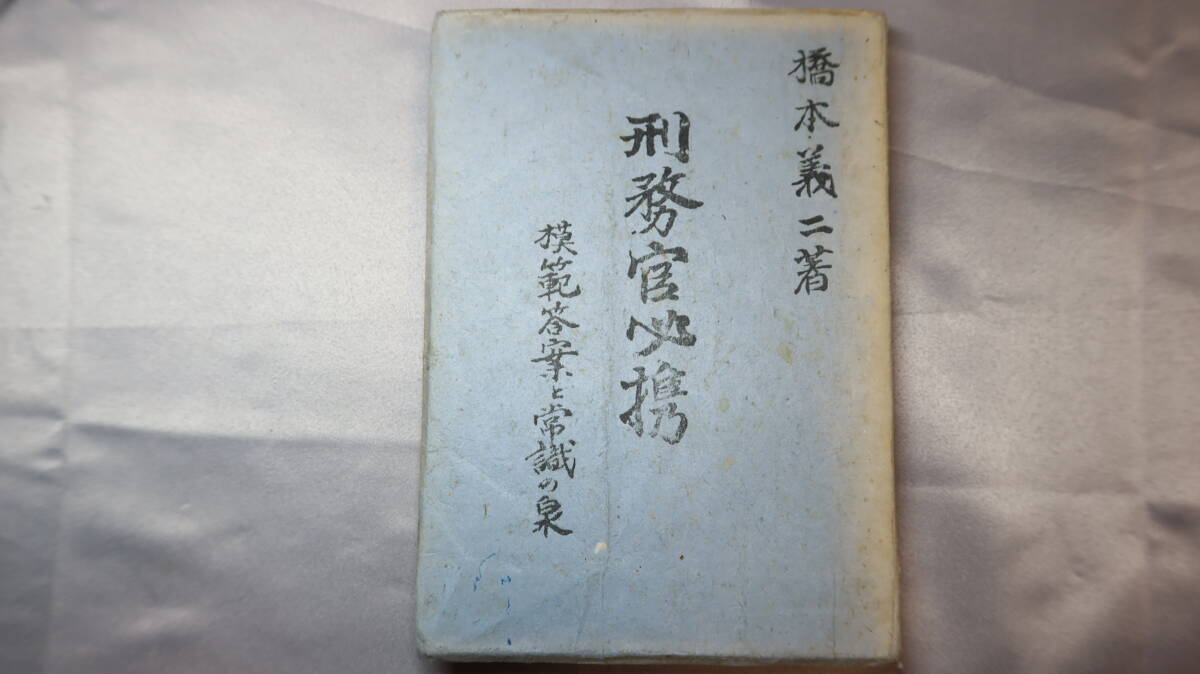 橋本義二著
刑務官必携
模範答案と常識の泉